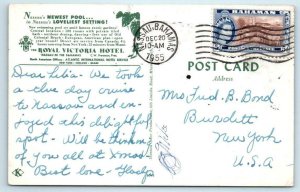 Nassau's NEWEST POOL...
in Nassau's LOVELIEST SETTING!
ROYAL VICTORIA HOTEL
NASSAU · BAHAMAS
DEC 20
10-AM
1955
BAHAMAS
POST CARD
Address
Dear We took
a five day cruise
to Nassau and en-
joyed this delightful
spot. Will be thinking
of you all at Xmas.
Best love -
Mrs. Fred B. Bond
Burdett
New York
U.S.A
K